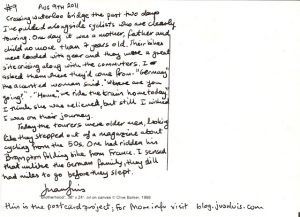 #9 Aug 9th 2011
Crossing waterloo bridge the past two days
I've pulled alongside cyclists who are clearly
touring. One day it was a mother, father and
child no more than 9 years old. Their bikes
were loaded with gear and they were a great
site cruising along with the commuters. I
asked them where they'd come from: "Germany"
the accented woman said. "Where are you
going?". "Home, we ride the train home today"
I think she was relieved, but still I wished
I was on their journey.
Today the tourers were older men, looking
like they stepped out of a magazine about
cycling from the 50s. One had ridden his
Brompton folding bike from France. I sensed
that unlike the German family, they still
had miles to go before they slept.
Juanluis
"Brotherhood" 36" x 24" oil on canvas © Clive Barker, 1998
this is the postcard project; for more info visit blog.juanluis.com